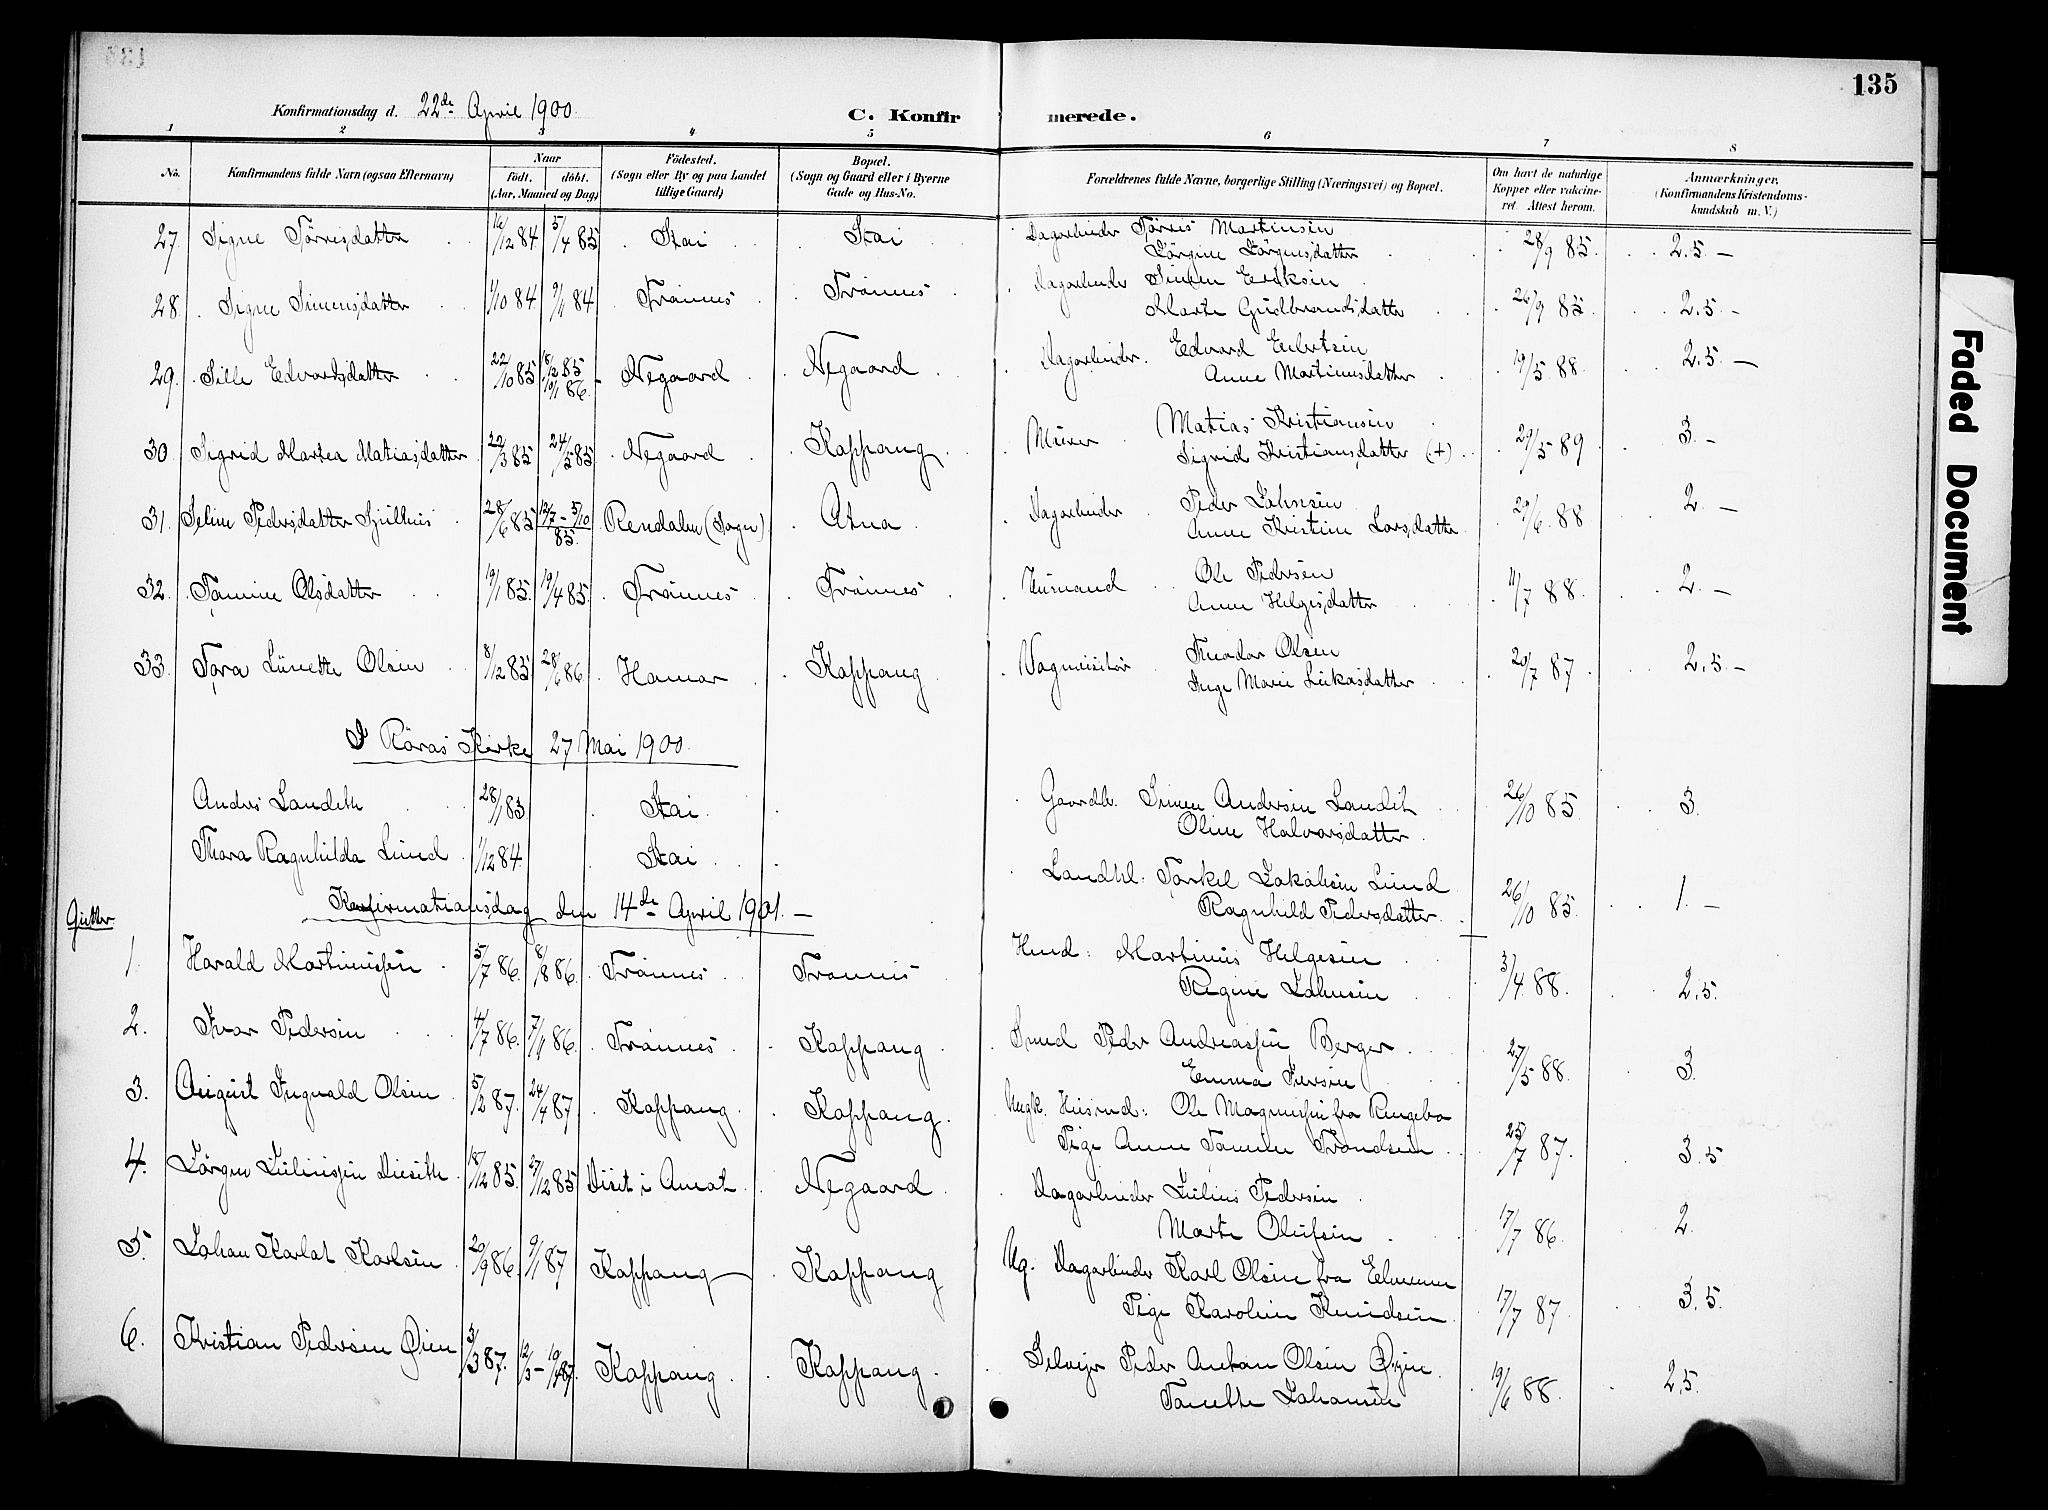 135
Konfirmationsdag d. 22de April 1900.
C. Konfirmerede.
1 2 3 4 5 6 7 8
No.
Konfirmandens fulde Navn (ogsaa Efternavn)
Naar
födt. döbt.
(Aar, Maaned og Dag)
Födested.
(Sogn eller By og paa Landet
tillige Gaard)
Bopæl.
(Sogn og Gaard eller i Byerne
Gade og Hus-No.
Forældrenes fulde Navne, borgerlige Stilling (Næringsvei) og Bopæl.
Om havt de naturlige
Kopper eller vakcine-
ret. Attest herom.
Anmærkninger,
(Konfirmandens Kristendoms-
kundskab m. V.)
27. Signe Törresdatter 16/12 84 5/4 85 Stai Stai Dagarbeider Törres Martinsen 28/9 85 2.5 -
Jörgine Jörgensdatter
28. Signe Simensdatter 1/10 84 9/11 84 Trönnes Trönnes Dagarbeider Simen Eriksen 26/9 85 2.5 -
Marte Gudbrandsdatter
29. Sille Edvardsdatter 22/10 85 18/12 85 10/1 86 Negaard Negaard Dagarbeider Edvard Enbertsen 19/5 88 2.5 -
Anne Martinusdatter
30. Sigrid Martea Matiasdatter 22/3 85 24/5 85 Negaard Koppang Murer Matias Kristiansen 29/5 89 3 -
Sigrid Kristiansdatter (+)
31. Seline Pedersdatter Sjulhus 28/6 85 12/7 - 5/10 85 Rendalen (Sogn) Atna Dagarbeider Peder Johnsen 29/6 88 2 -
Anne Kristine Larsdatter
32. Tomine Olsdatter 19/1 85 19/4 85 Trönnes Trönnes Husmand Ole Pedersen 11/7 88 2 -
Anne Helgesdatter
33. Tora Linette Olsen 8/12 85 28/6 86 Hamar Koppang Vognvisitör Theodor Olsen 20/7 87 2.5 -
Inge Marie Lukasdatter
I Röros Kirke 27 Mai 1900.
Anders Landeth 28/1 83 Stai Gaardb. Simen Andersen Landet 26/10 85 3.
Oline Halvorsdatter
Thora Ragnhilda Lund 1/12 84 Stai Landhl. Torkel Jakobsen Lund 26/10 85 1. -
Ragnhild Pedersdatter
Konfirmationsdag den 14de April 1901. -
Gutter
1. Harald Martinussen 5/7 86 8/8 86 Trönnes Trönnes Husmd: Martinus Helgesen 3/4 88 2.5.
Regine Johnsen
2. Ivar Pedersen 4/7 86 7/11 86 Trönnes Koppang Smed Peder Andreassen Berger 27/5 88 3
Emma Iversen
3. August Ingvald Olsen 5/2 87 24/4 87 Koppang Koppang Ungk. Husmd: Ole Magnussen fra Ringebo 25/7 87 3.5
Pige Anne Tomine Trondsen
4. Jörgen Juliussen Diseth 18/12 85 27/12 85 Diset i Aamot Negaard Dagarbeider Julius Pedersen 17/7 86 2.
Marte Olufsen
5. Johan Karlot Karlsen 20/9 86 9/1 87 Koppang Koppang Ug. Dagarbeider Karl Olsen fra Elverum 17/7 87 3.5.
Pige Karoline Knudsen
6. Kristian Pedersen Öien 3/3 87. 12/3 - 10/4 87 Koppang Koppang Selveier Peder Anton Olsen Öyen 19/6 88 2.5.
Tonette Johansen
Faded Document